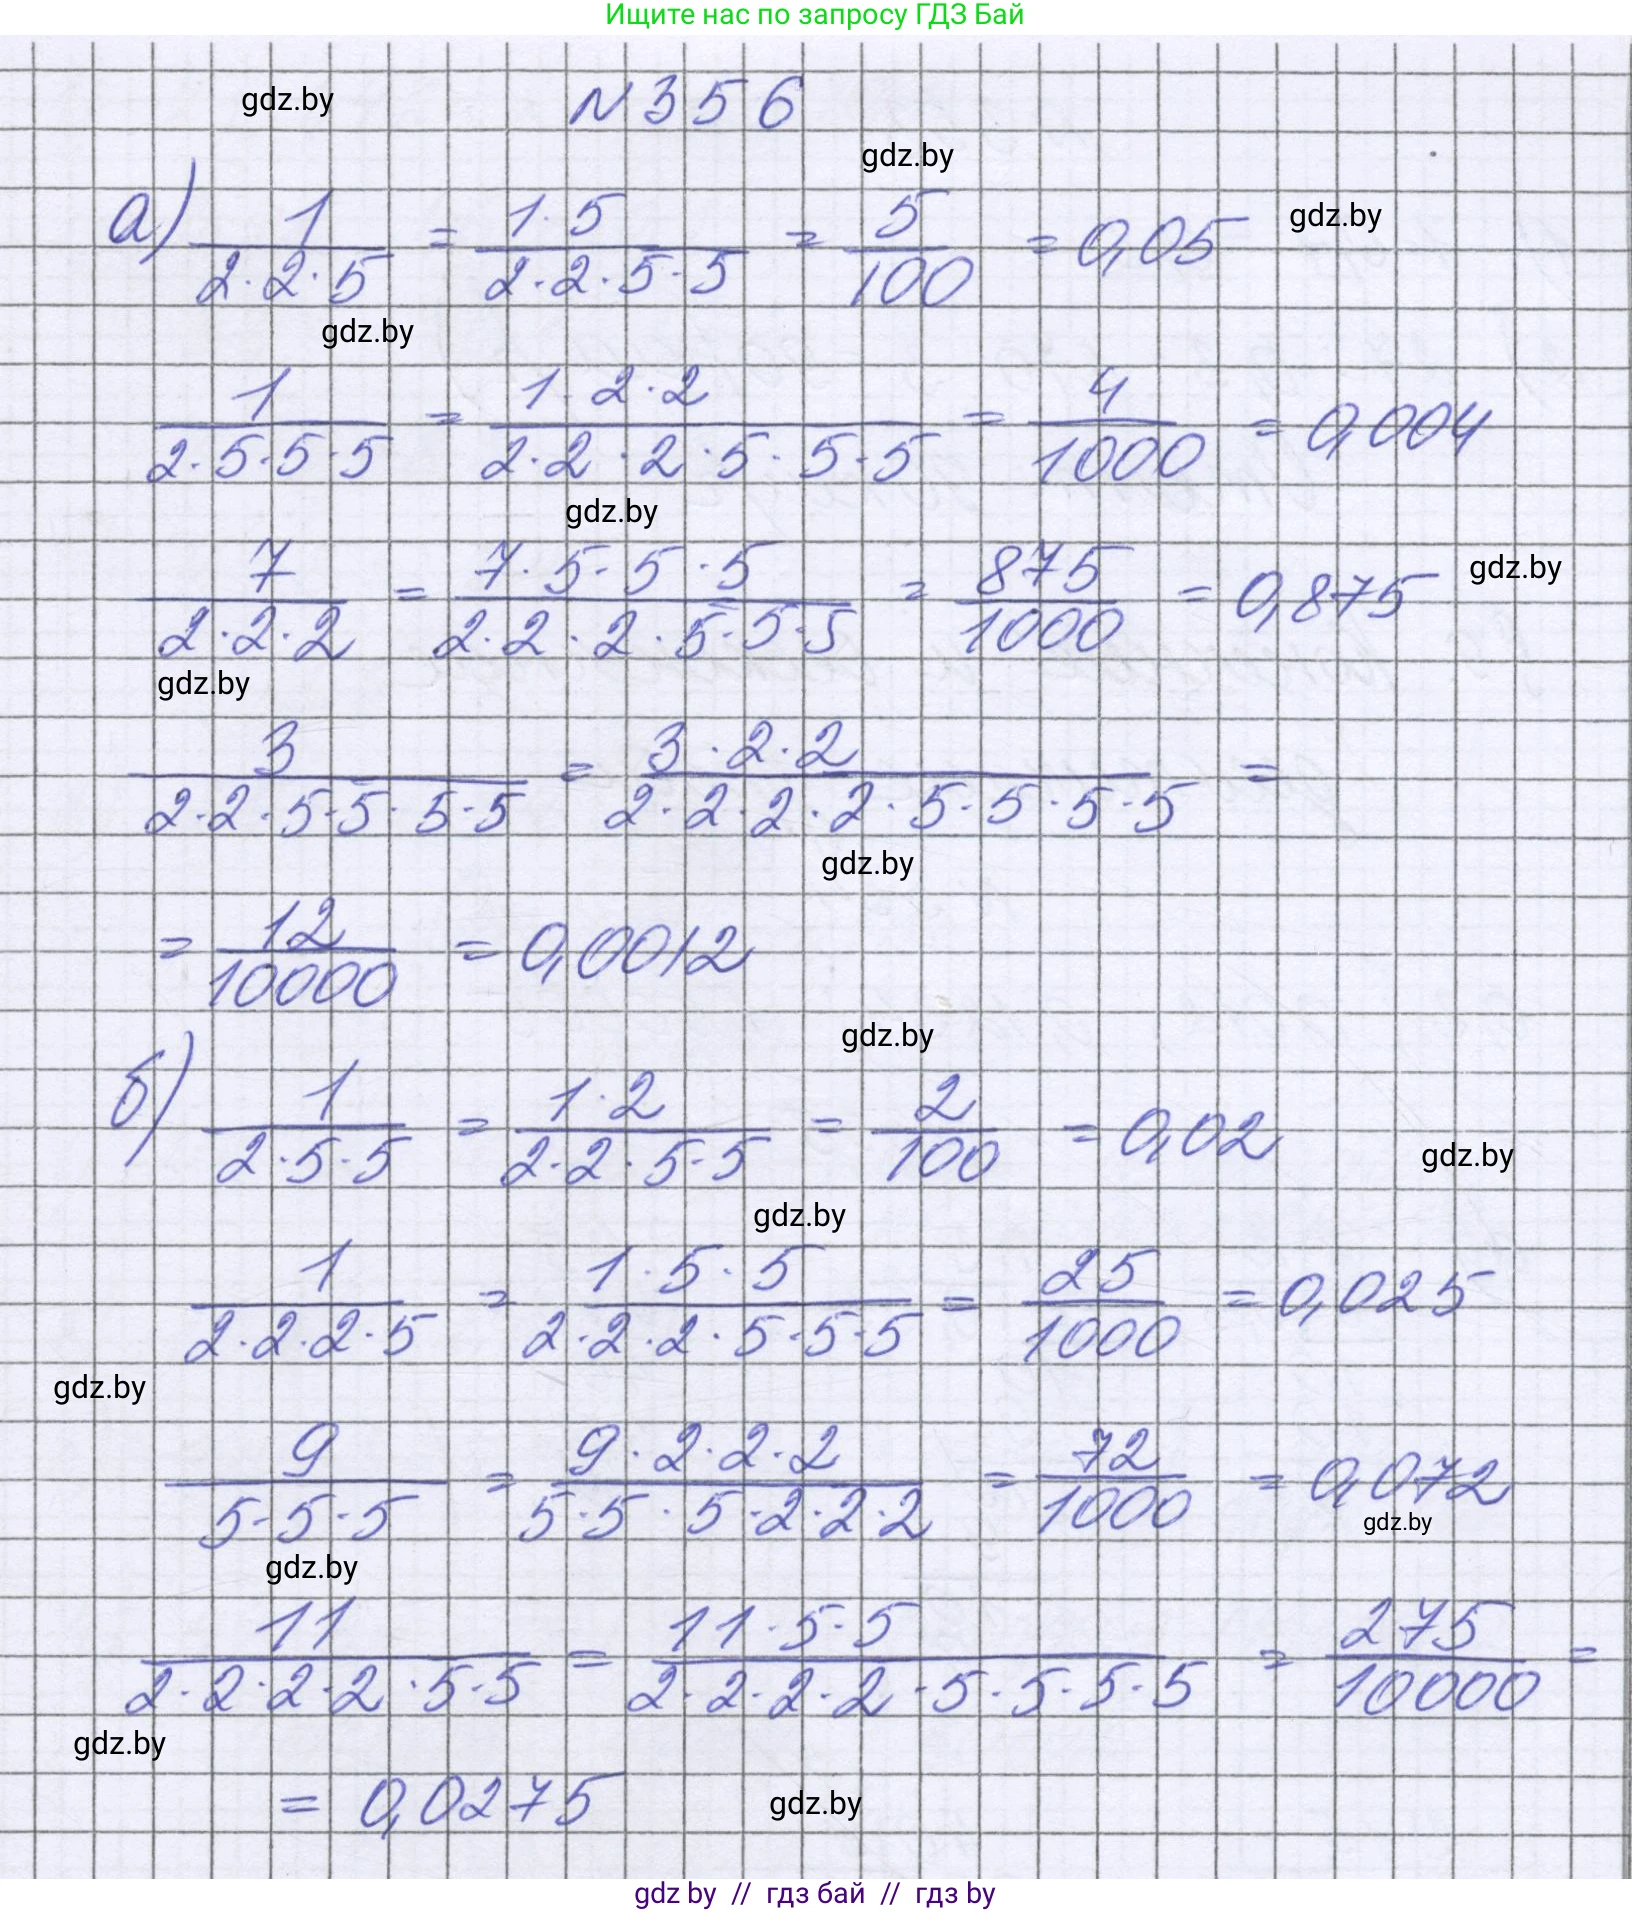 Ищите нас по запросу ГДЗ Бай
gdz.by
N 356
gdz.by
а) 1/(2·2·5) = (1·5)/(2·2·5·5) = 5/100 = 0,05
gdz.by
gdz.by
1/(2·5·5·5) = (1·2·2)/(2·2·2·5·5·5) = 4/1000 = 0,004
gdz.by
7/(2·2·2) = (7·5·5·5)/(2·2·2·5·5·5) = 875/1000 = 0,875
gdz.by
gdz.by
3/(2·2·5·5·5·5) = (3·2·2)/(2·2·2·2·5·5·5·5) =
gdz.by
= 12/10000 = 0,0012
gdz.by
б) 1/(2·5·5) = (1·2)/(2·2·5·5) = 2/100 = 0,02
gdz.by
gdz.by
1/(2·2·2·5) = (1·5·5)/(2·2·2·5·5·5) = 25/1000 = 0,025
gdz.by
9/(5·5·5) = (9·2·2·2)/(5·5·5·2·2·2) = 72/1000 = 0,072
gdz.by
gdz.by
11/(2·2·2·2·5·5) = (11·5·5)/(2·2·2·2·5·5·5·5) = 275/10000 =
gdz.by
= 0,0275
gdz.by
gdz by // гдз бай // гдз by